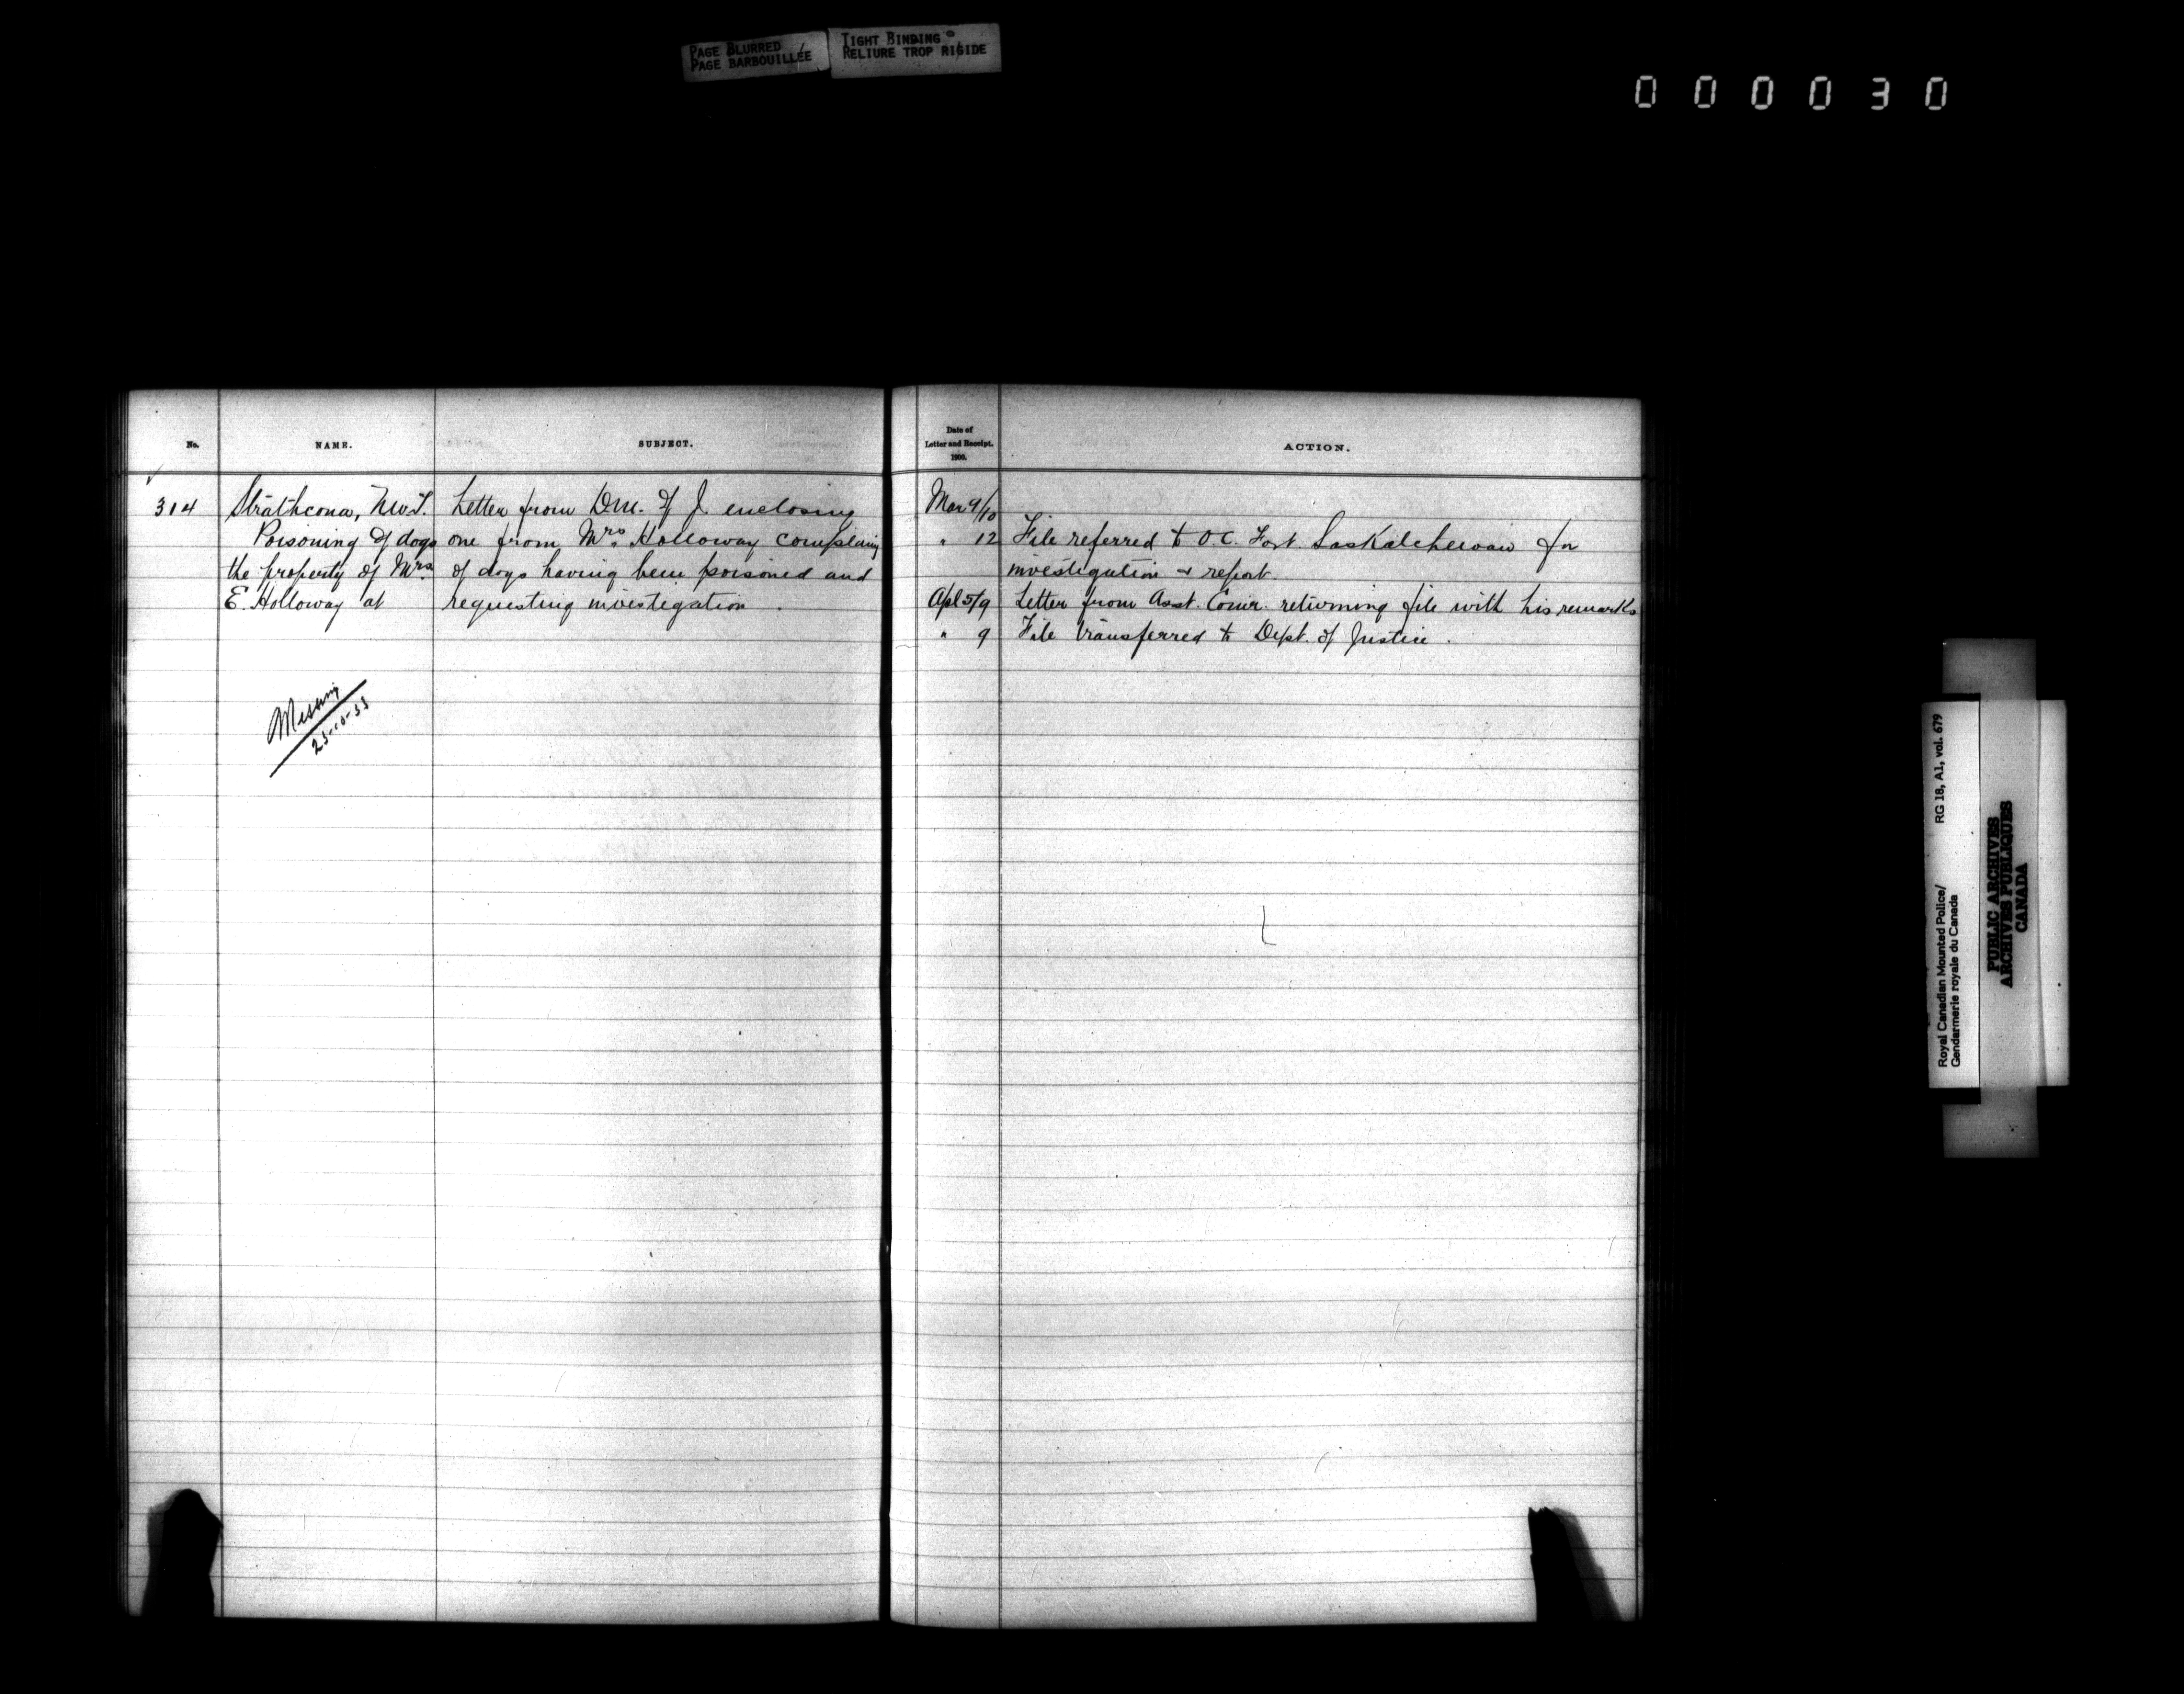 PAGE BLURRED
PAGE BARBOUILLÉE
TIGHT BINDING
RELIURE TROP RIGIDE
000030
No.
NAME.
SUBJECT.
314
Strathcona, N.W.T.
Poisoning of dogs
the property of Mrs.
E. Holloway at
Letter from D.M. of J. enclosing
one from Mrs. Holloway complaing
of dogs having been poisoned and
requesting investigation.
Missing
25-10-33
Date of
Letter and Receipt.
1900.
ACTION.
Mar 9/10
" 12 File referred to O.C. Fort Saskatchewan for
investigation & report.
Apl 5/9 Letter from Asst. Comr. returning file with his remarks
" 9 File transferred to Dept. of Justice.
Royal Canadian Mounted Police/
Gendarmerie royale du Canada
RG 18, A1, vol. 679
PUBLIC ARCHIVES
ARCHIVES PUBLIQUES
CANADA